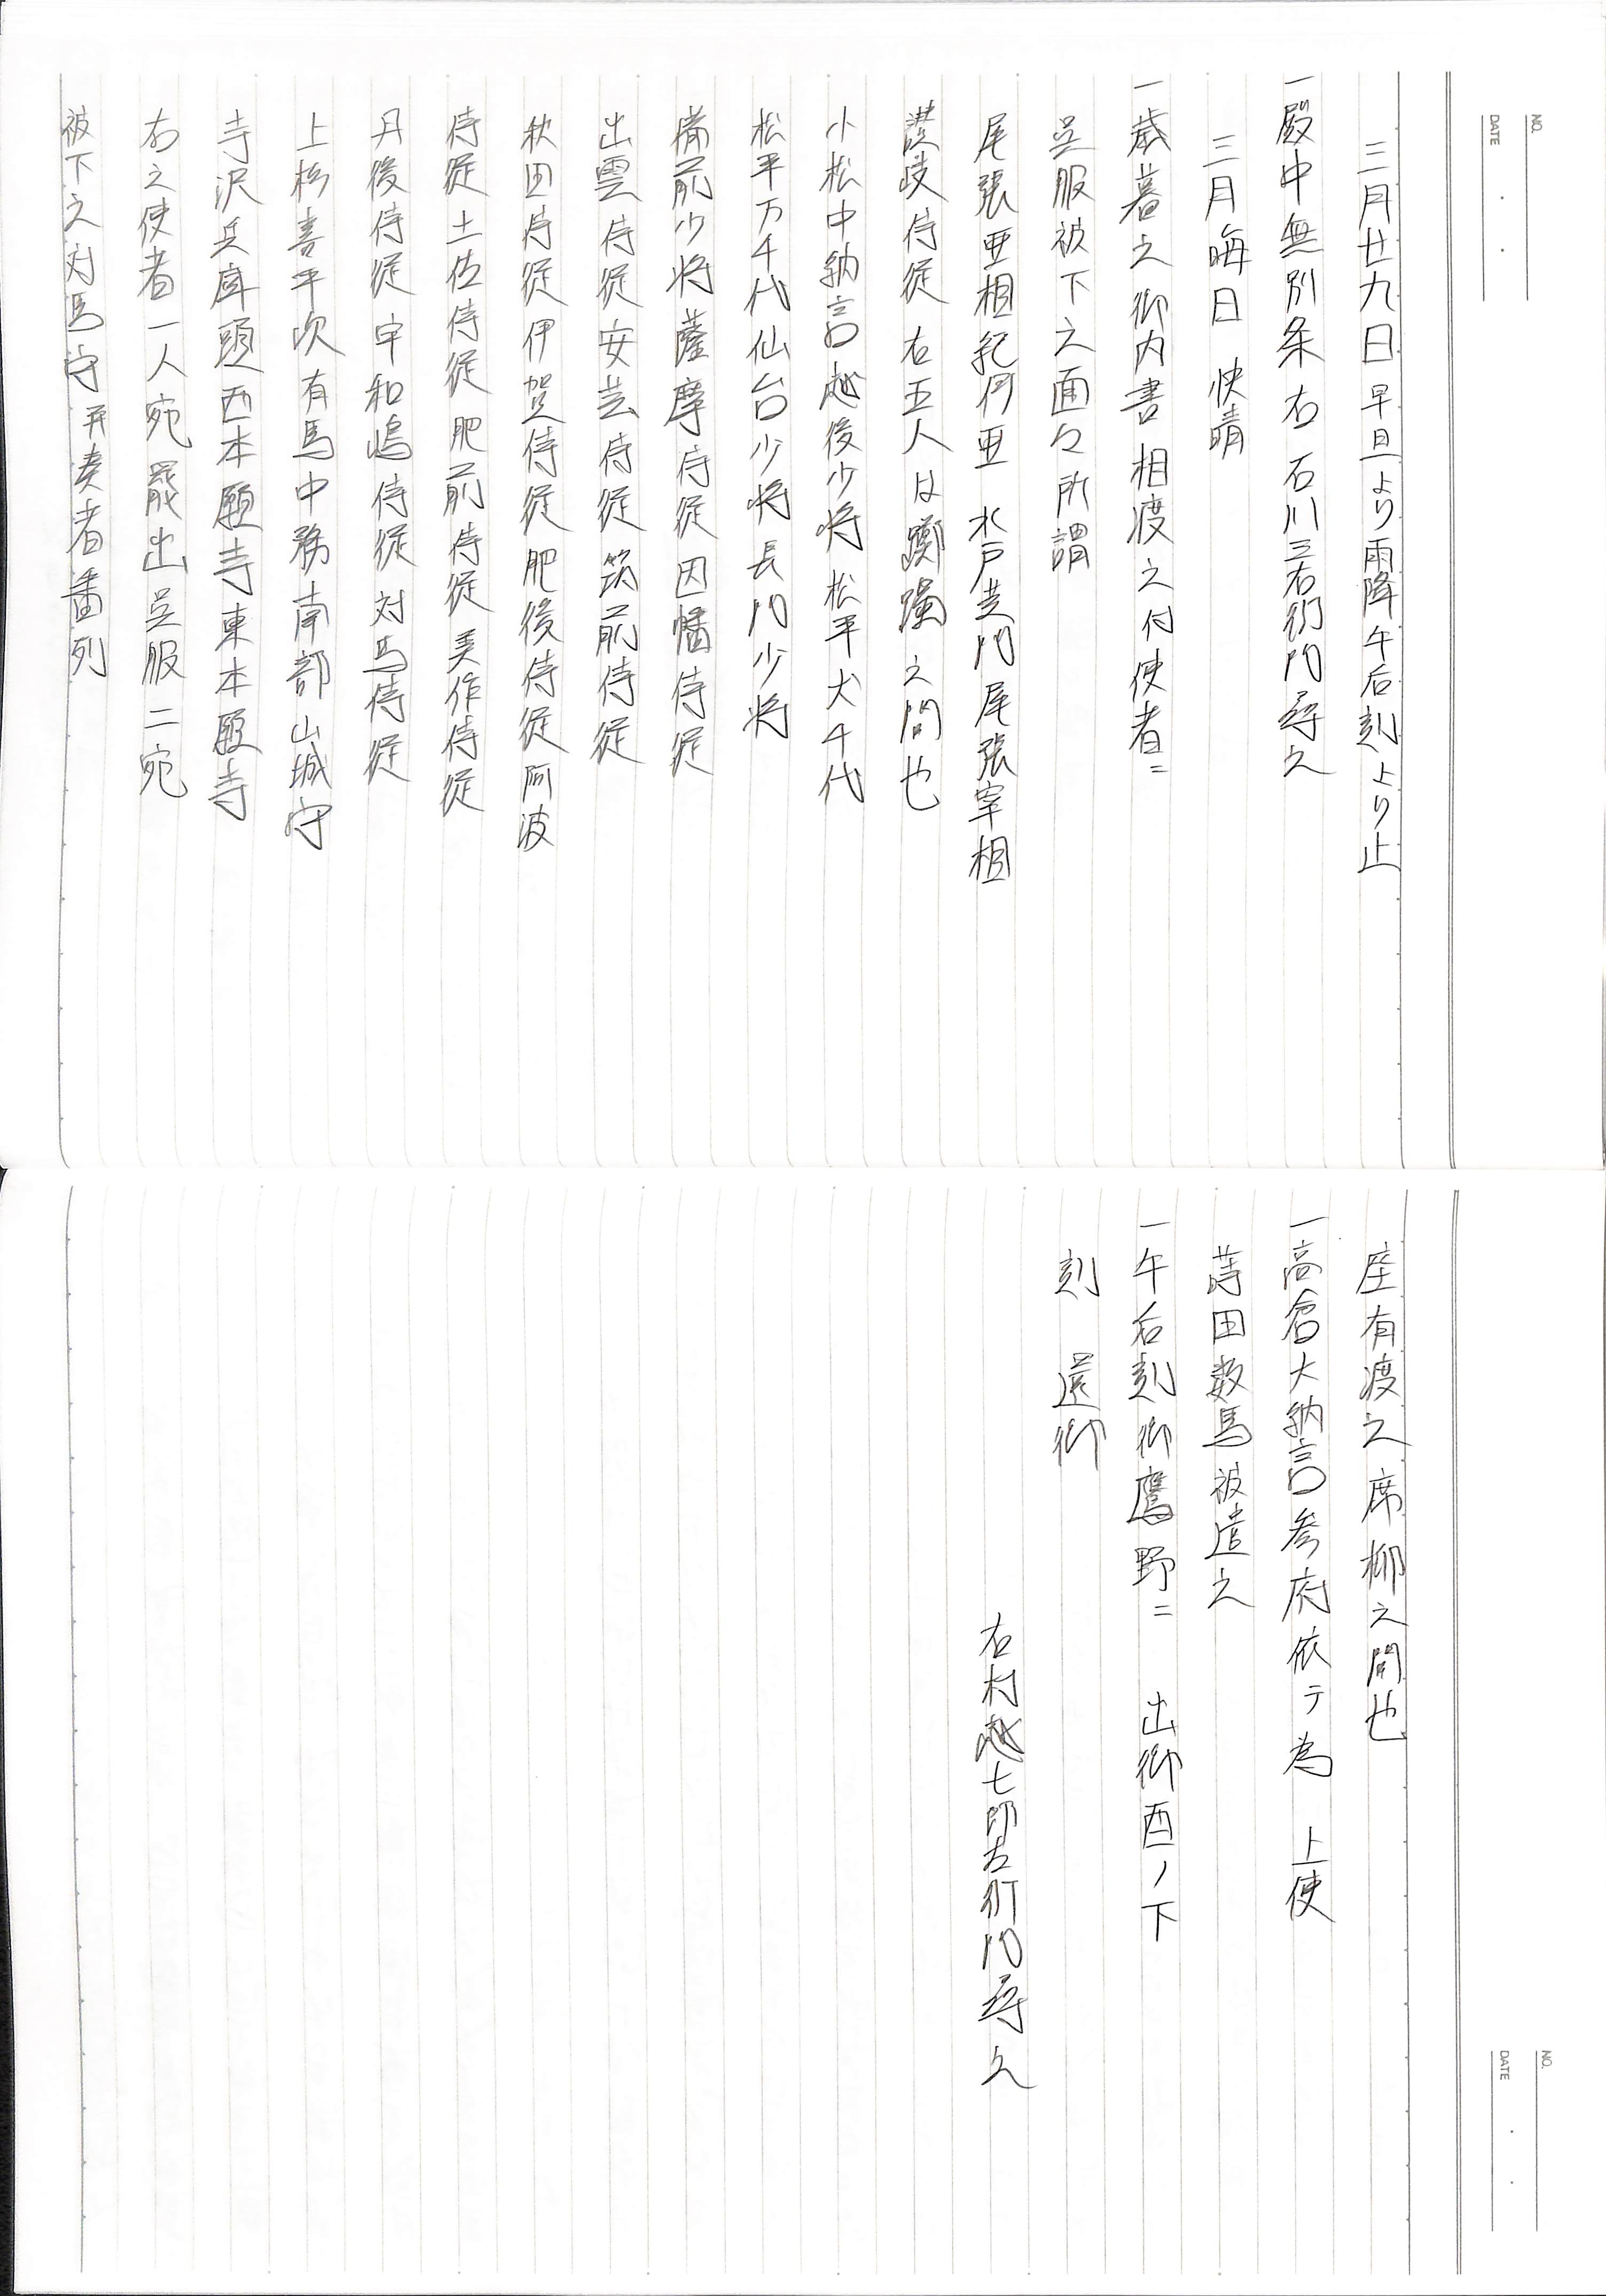 NO.
DATE
三月廿九日 早旦より雨降午后刻より止
一殿中無別条右 石川三右衛門尋之
三月晦日 快晴
一歳暮之御内書相渡之付使者ニ
呉服被下之面々所謂
尾張亜相紀伊亜 水戸黄門尾張宰相
讃岐侍従右五人は躑躅之間也
小松中納言越後少将松平犬千代
松平万千代仙台少将長門少将
備前少将薩摩侍従因幡侍従
出雲侍従安芸侍従筑前侍従
秋田侍従伊賀侍従肥後侍従阿波
侍従土佐侍従肥前侍従美作侍従
丹後侍従宇和嶋侍従対馬侍従
上杉喜平次有馬中務南部山城守
寺沢兵庫頭西本願寺東本願寺
右之使者一人宛罷出呉服二宛
被下之対馬守并奏者番列
NO.
DATE
座有渡之席柳之間也
一高倉大納言参府依テ為 上使
蒔田数馬被遣之
一午后刻御鷹野ニ 出御酉ノ下
刻 還御
右村越七郎左衛門尋之